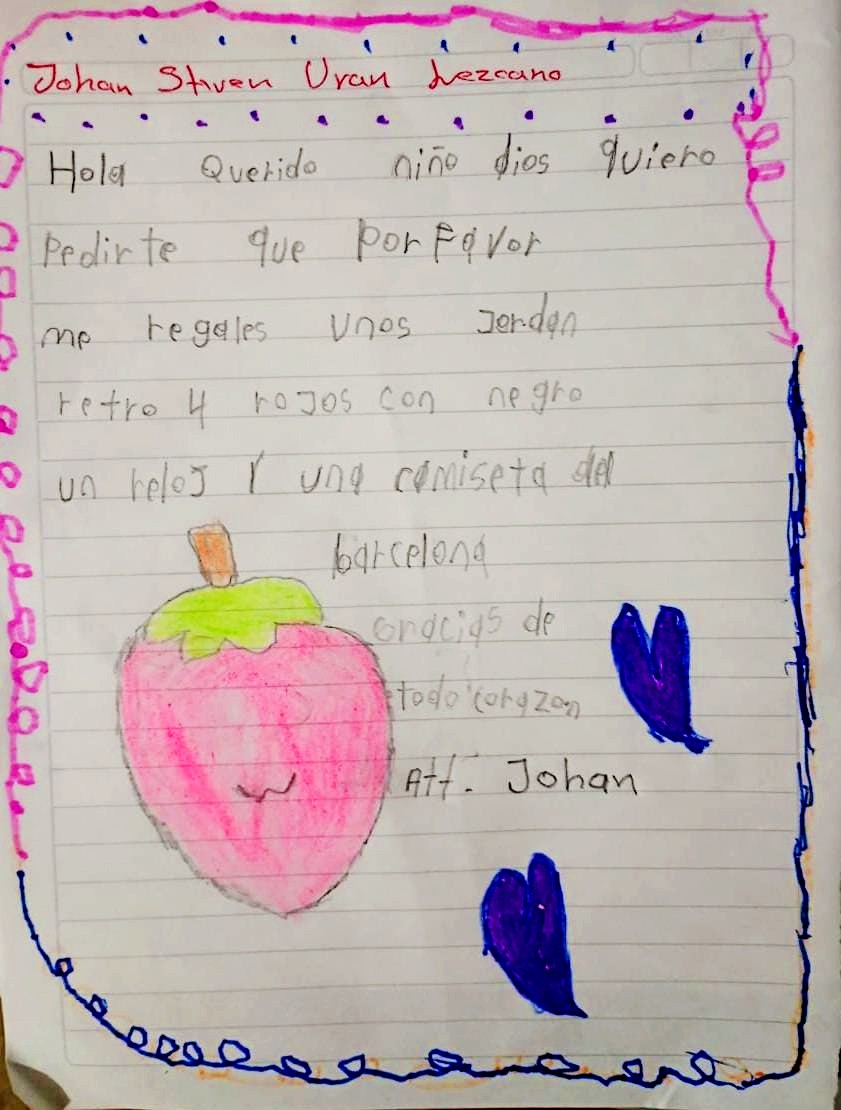 Johan Stiven Uran Lezcano
Hola Querido niño dios quiero
Pedirte que por Favor
me regales unos Jordan
retro 4 rojos con negro
un reloj Y una camiseta del
barcelona
Gracias de
todo corazon
Att. Johan